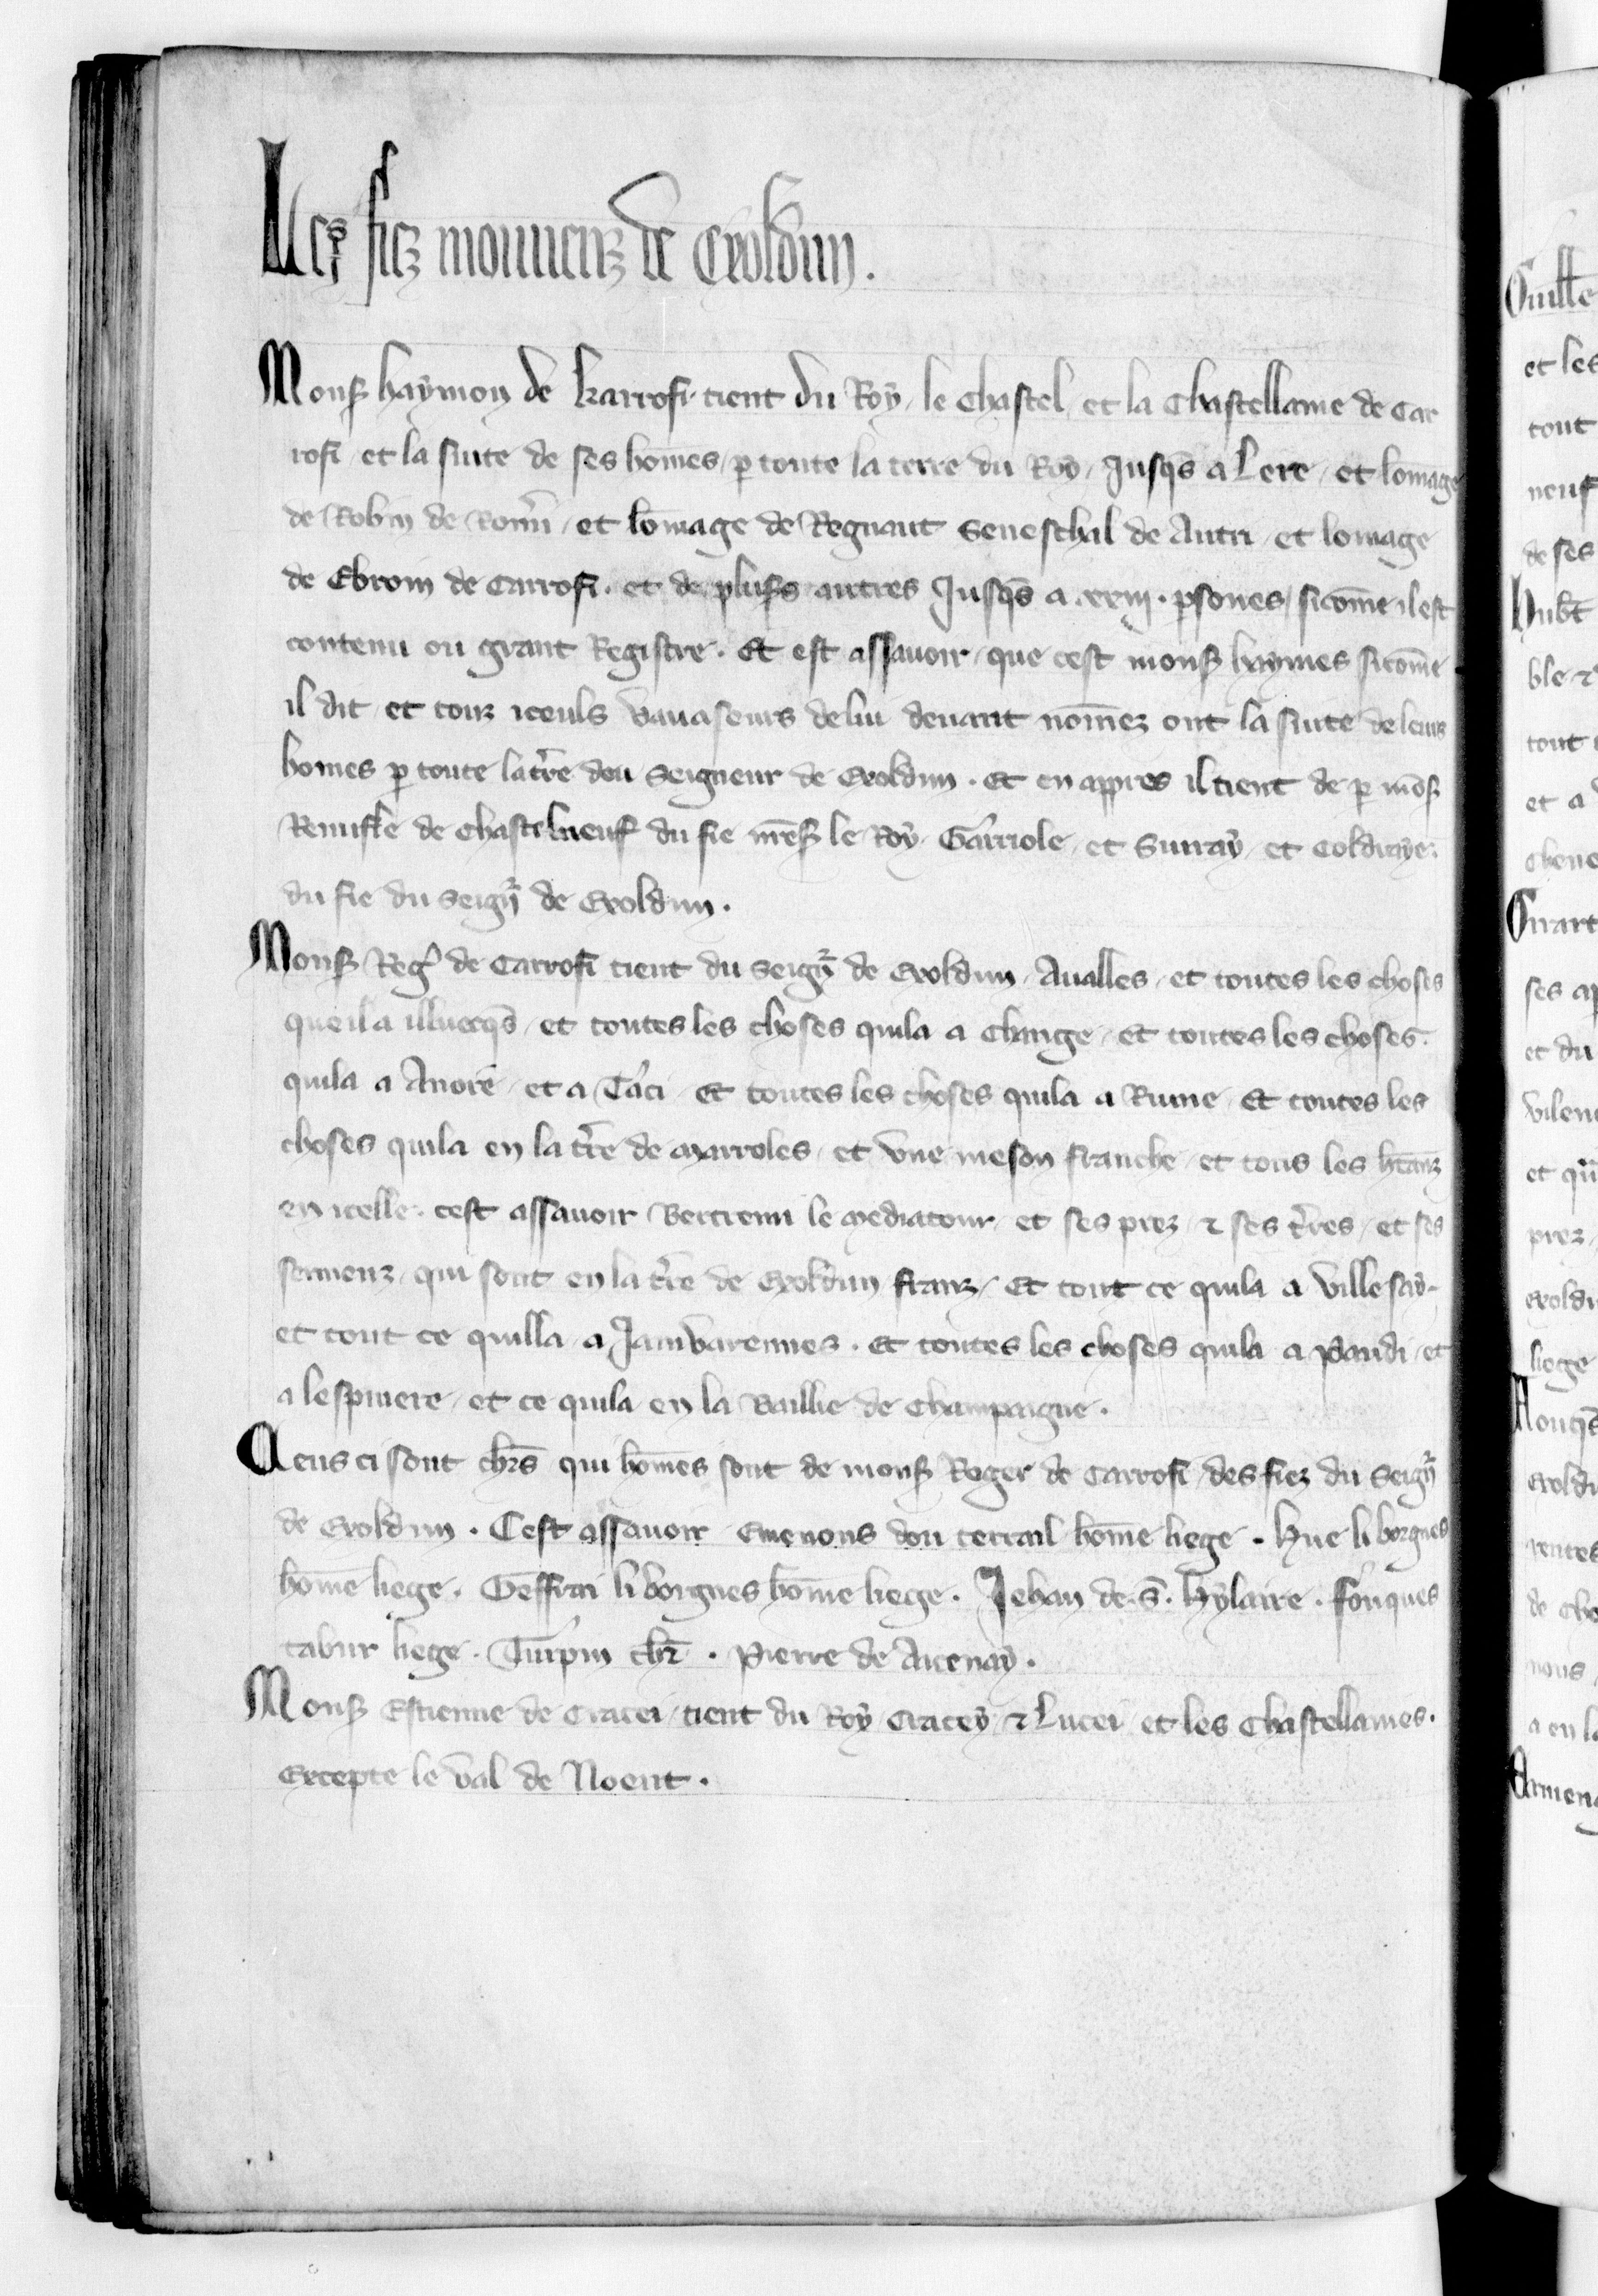 Les fiez mouuenz de Exoldun.
Monsr haymon de karrofi tient du Roy le Chastel et la Chastellanie de Car
rofi et la suite de ses hom̄es p toute la terre du Roy Jusqs a Lere et lomage
de Robin de et lomage de Regnaut Seneschal de Autri et lomage
de Ebroin de Carrofi. et de plusrs autres Jusqs a .xxiij. psones sicom̄e il est
contenu ou grant Registre. Et est assauoir que cest monsr haymes sicom̄e
il dit et touz iceuls vauaseurs de lui deuant nom̄ez ont la suite de leurs
homes p toute la tr̄re dou Seigneur de Exoldun. Et en appres il tient de p mōsr
de Chastelneuf du fie le Roy Garriole et Surray et Coldraye
du fie du Seigr̄ de Exoldun.
Monsr Reg̾ de Carrofi tient du Seigr̄ de Exoldun Aualles et toutes les choses
que il a illuecqs et toutes les choses quila a Change et toutes les choses
quila a Anore et a Taci Et toutes les choses quila a Rume Et toutes les
choses quila en la tr̄re de Marroles et vne meson franche et tous les
en icelle. cest assauoir Bertrenu le Mediatour et ses prez ⁊ ses tr̄res et ses
sermenz qui sont en la tr̄re de Exoldun franz Et tout ce quila a Ville say
et tout ce quilla a Jamvarennes. Et toutes les choses quila a Paudi et
a lespiniere et ce quila en la Baillie de Champaigne.
Ceus ci sont chr̄s qui hom̄es sont de monsr Roger de Carrofi des fiez du Seigr̄
de Exoldun. Cest assauoir Emenons dou terrail hom̄e liege. Hue li borgnes
hom̄e liege. Geffrai li borgnes hom̄e liege. Jehan de .S̄. Hylaire. fouques
tabur liege. Turpin chr̄. Pierre de Aicenay.
Monsr Estienne de Gracei tient du Roy Gracey ⁊ Lucei et les Chastellanies.
Excepte le val de Noent.
Guill̄e
et les
tout
neuf
de ses
Hubt̄
ble ⁊
tout
et a
Chene
Girart
ses ap
et du
vilen
et qu
prez
exoldu
liege
exoldu
rentes
de Che
a en la
Ermeng